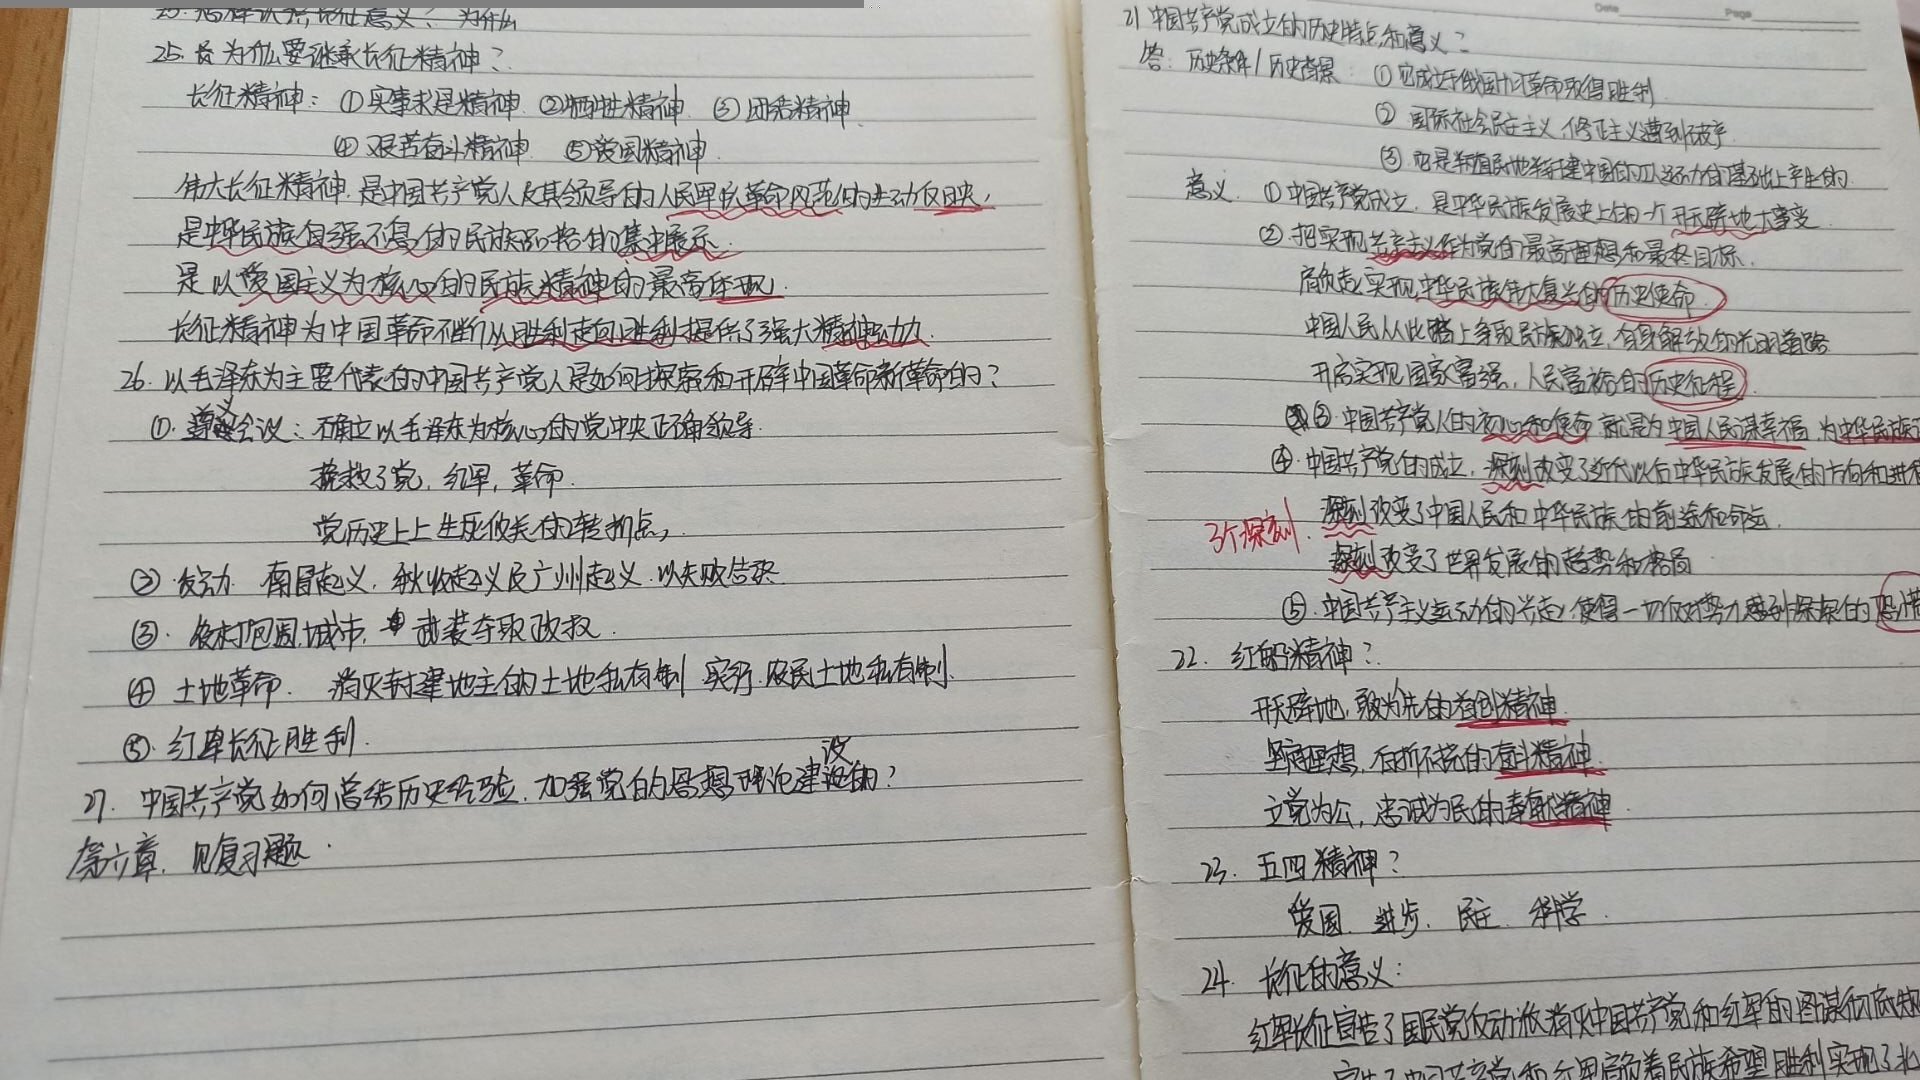 25. 为什么要继承长征精神?
长征精神: ①实事求是精神 ②牺牲精神 ③团结精神
④艰苦奋斗精神 ⑤爱国精神.
伟大长征精神.是中国共产党人及其领导的人民军队革命风范的生动反映,
是中华民族自强不息的民族品格的集中展示.
是以爱国主义为核心的民族精神的最高体现.
长征精神为中国革命不断从胜利走向胜利提供了强大精神动力.
26. 以毛泽东为主要代表的中国共产党人是如何探索和开辟中国革命新革命的?
①. 遵义会议: 确立以毛泽东为核心的党中央正确领导.
挽救了党, 红军, 革命.
党历史上上生死攸关的转折点,
② 发动 南昌起义, 秋收起义及广州起义. 以失败告终
③. 农村包围城市, 武装夺取政权.
④ 土地革命. 消灭封建地主的土地私有制 实行农民土地私有制.
⑤. 红军长征胜利.
27. 中国共产党如何总结历史经验, 加强党的思想理论建设的?
第六章, 见复习题.
Date Page
21 中国共产党成立的历史特点和意义?
答: 历史条件/历史背景: ①它成立于俄国十月革命取得胜利
② 国际社会民主主义, 修正主义遭到破产.
③ 它是半殖民地半封建中国的工人运动的基础上产生的.
意义. ①中国共产党成立, 是中华民族发展史上的一个开天辟地大事变.
②. 把实现共产主义作为党的最高理想和最终目标.
肩负起实现中华民族伟大复兴的历史使命.
中国人民从此踏上争取民族独立, 自身解放的光明道路
开启实现国家富强, 人民富裕的历史征程
③. 中国共产党人的初心和使命, 就是为中国人民谋幸福, 为中华民族
④. 中国共产党的成立, 深刻改变了近代以后中华民族发展的方向和进程
3个深刻. 深刻改变了中国人民和中华民族的前途和命运.
深刻改变了世界发展的趋势和格局
⑤. 中国共产主义运动的兴起, 使得一切反动势力感到深深的恐惧
22. 红船精神?
开天辟地, 敢为人先的首创精神.
坚定理想, 百折不挠的奋斗精神.
立党为公, 忠诚为民的奉献精神.
23. 五四精神?
爱国. 进步. 民主. 科学.
24. 长征的意义:
红军长征宣告了国民党反动派消灭中国共产党和红军的图谋彻底失败
宣告了中国共产党和红军肩负着民族希望胜利实现了北